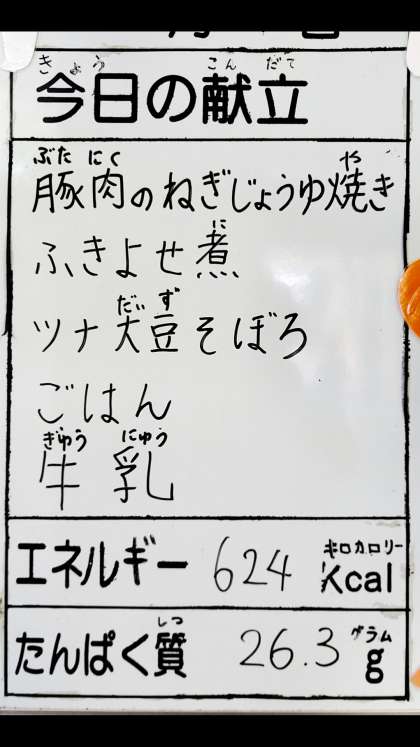 きょう こん だて
今日の献立
ぶた にく や
豚肉のねぎじょうゆ焼き
に
ふきよせ煮
だい ず
ツナ大豆そぼろ
ごはん
ぎゅう にゅう
牛乳
キロカロリー
エネルギー 624 Kcal
しつ グラム
たんぱく質 26.3 g